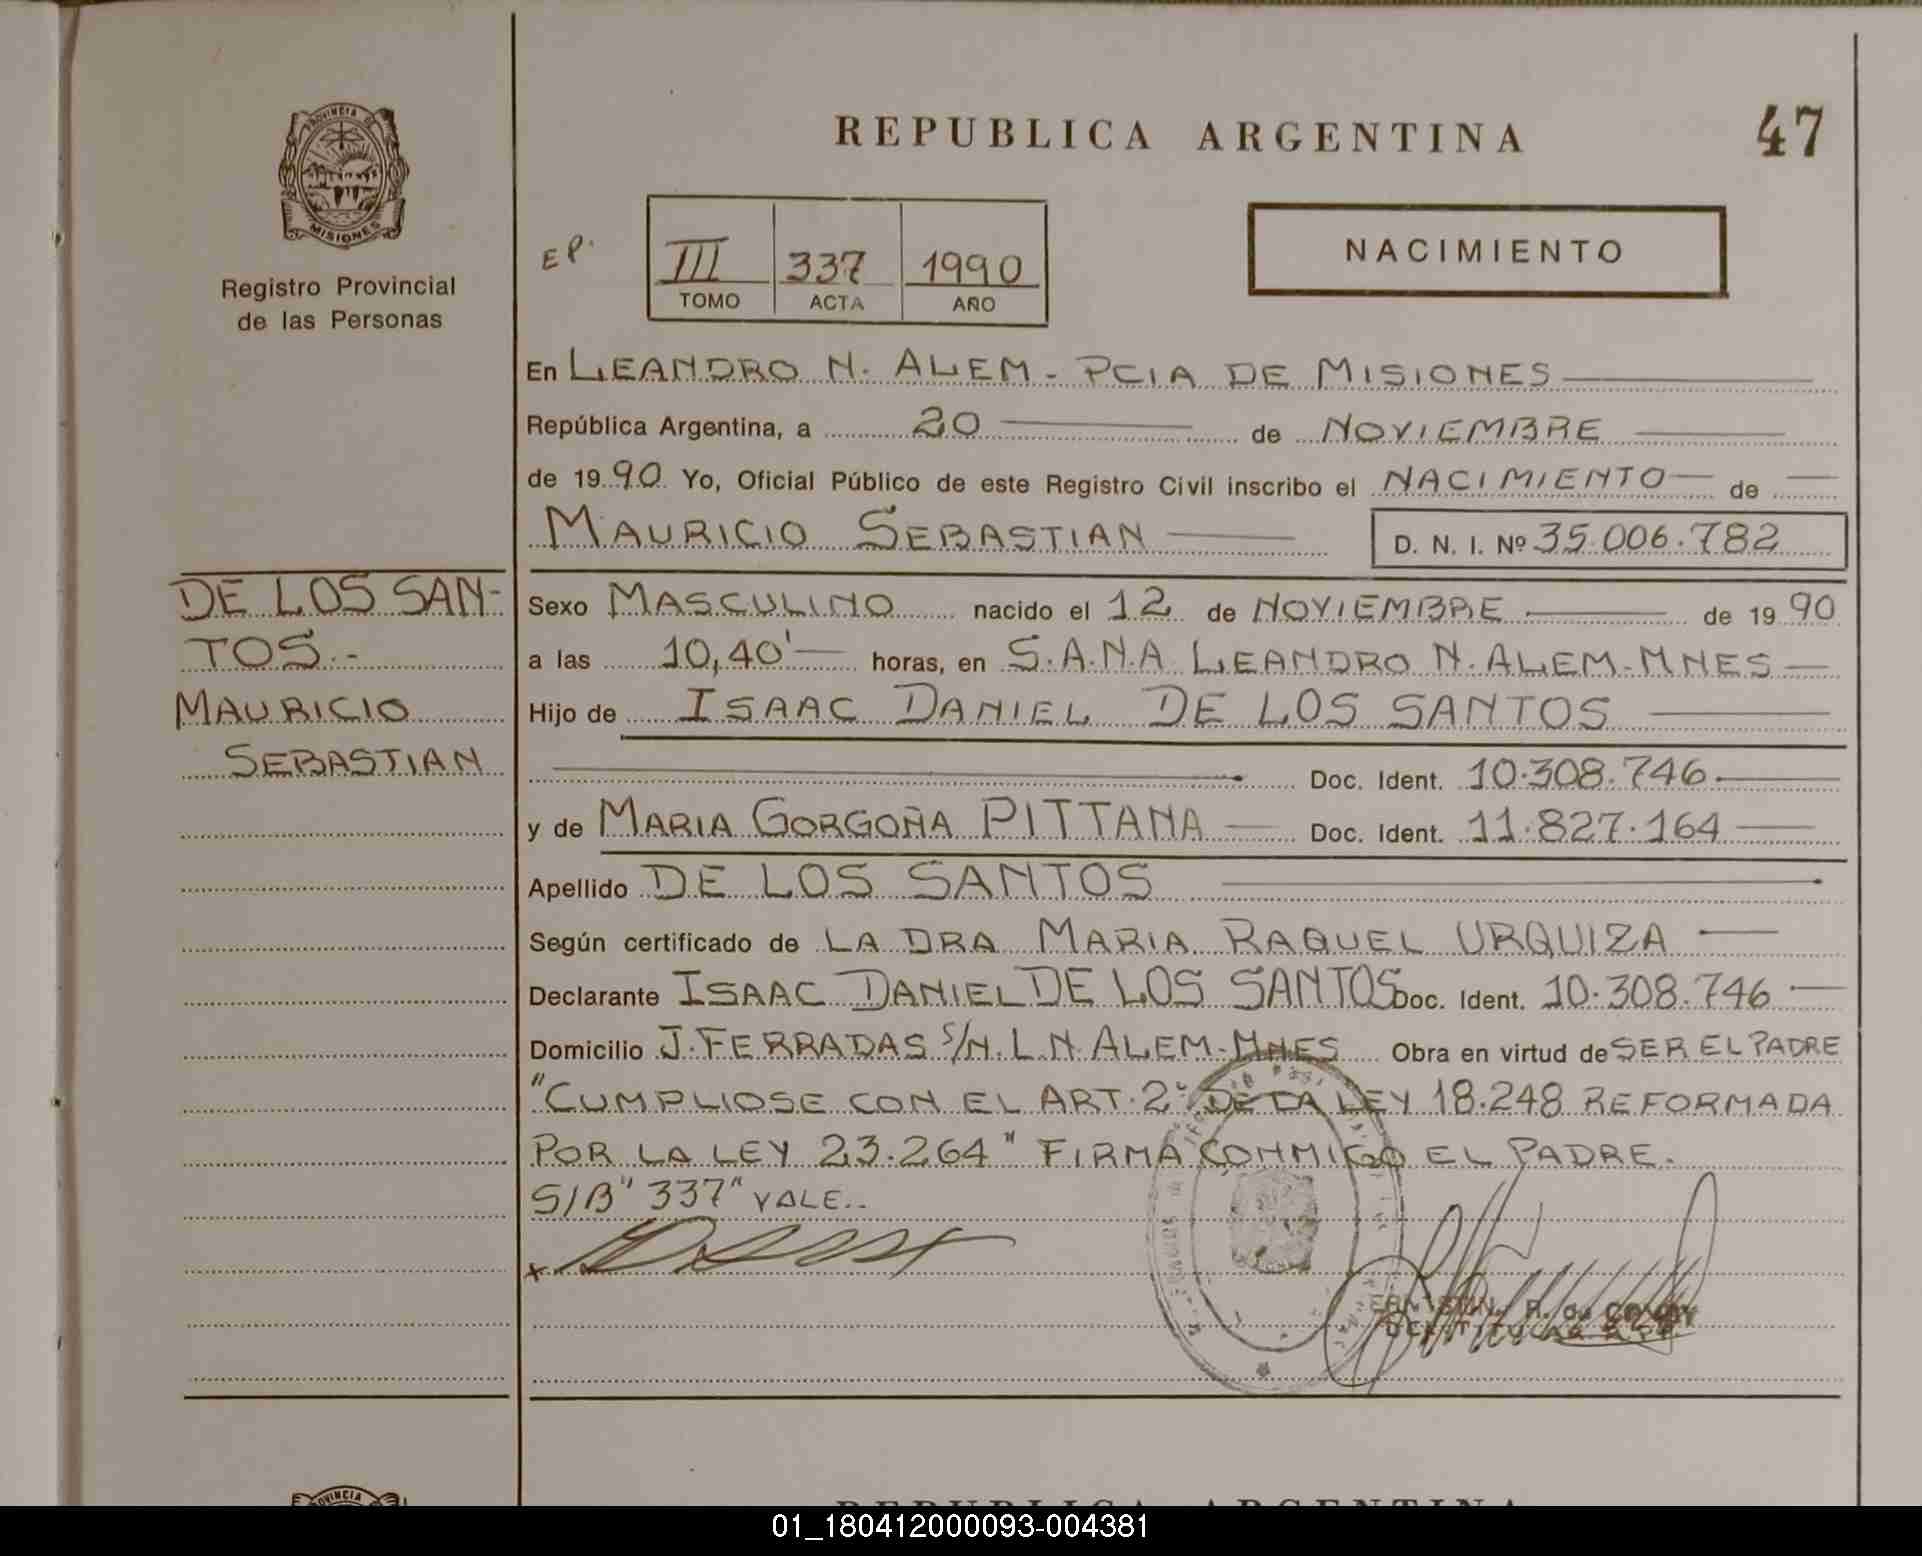 PROVINCIA DE
MISIONES
Registro Provincial
de las Personas
REPUBLICA ARGENTINA
47
EP.
III 337 1990
TOMO ACTA AÑO
NACIMIENTO
En LEANDRO N. ALEM - PCIA DE MISIONES
República Argentina, a 20 de NOVIEMBRE
de 1990 Yo, Oficial Público de este Registro Civil inscribo el NACIMIENTO de
MAURICIO SEBASTIAN D. N. I. Nº 35.006.782
DE LOS SAN-
TOS.-
MAURICIO
SEBASTIAN
Sexo MASCULINO nacido el 12 de NOVIEMBRE de 1990
a las 10,40' horas, en S.A.N.A LEANDRO N. ALEM-MNES
Hijo de ISAAC DANIEL DE LOS SANTOS
Doc. Ident. 10.308.746
y de MARIA GORGOÑA PITTANA Doc. Ident. 11.827.164
Apellido DE LOS SANTOS
Según certificado de LA DRA MARIA RAQUEL URQUIZA
Declarante ISAAC DANIEL DE LOS SANTOS Doc. Ident. 10.308.746
Domicilio J. FERRADAS S/N. L.N. ALEM-MNES Obra en virtud de SER EL PADRE
"CUMPLIOSE CON EL ART. 2º DE LA LEY 18.248 REFORMADA
POR LA LEY 23.264" FIRMA CONMIGO EL PADRE.
S/B "337" VALE..
PROVINCIA
REPUBLICA ARGENTINA
01_180412000093-004381